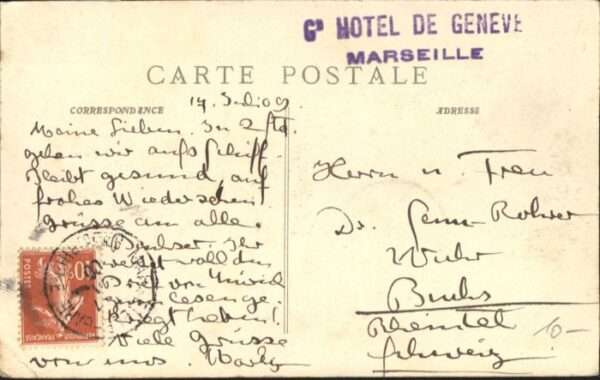 Gd HOTEL DE GENEVE
MARSEILLE
CARTE POSTALE
CORRESPONDANCE
ADRESSE
Meine Lieben. In 2 Std.
gehen wir aufs Schiff.
Bleibt gesund, auf
frohes Wiedersehen
Grüsse an alle.
Ihr
wohl den
Brief von
Viele Grüsse
von uns.
Herrn u. Frau
Dr. Senn-Rohrer
Wuhr
Buchs
Rheintal
Schweiz
10-
POSTES
10